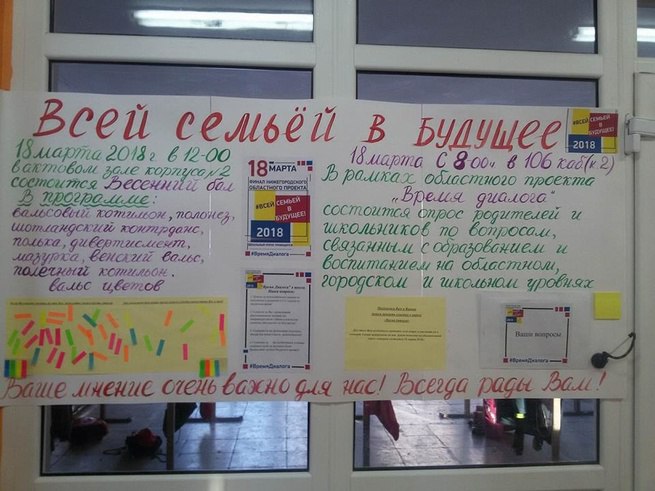 Всей семьёй в будущее
#ВСЕЙ СЕМЬЕЙ В БУДУЩЕЕ!
2018
18 марта 2018 г. в 12-00
в актовом зале корпуса №2
состоится Весенний бал
В программе:
вальсовый котильон, полонез,
шотландский контрданс,
полька, дивертисмент,
мазурка, венский вальс,
полечный котильон,
вальс цветов
18 МАРТА
ФИНАЛ НИЖЕГОРОДСКОГО
ОБЛАСТНОГО ПРОЕКТА
#ВСЕЙ СЕМЬЕЙ В БУДУЩЕЕ!
2018
#ВремяДиалога
18 марта с 8 00ч в 106 каб(к.2)
В рамках областного проекта
„Время диалога"
состоится опрос родителей и
школьников по вопросам,
связанным с образованием и
воспитанием на областном,
городском и школьном уровнях
#ВремяДиалога
Ваши вопросы
#ВремяДиалога
Ваше мнение очень важно для нас! Всегда рады Вам!